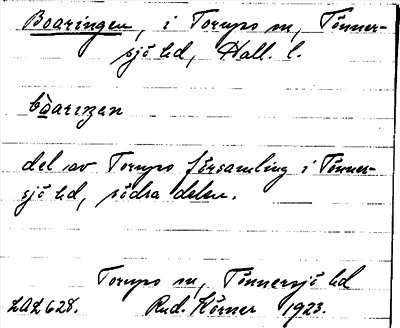 Boaringen, i Torups sn, Tönner-
sjö hd, Hall. l.
bòarinɜen
del av Torups församling i Tönner-
sjö hd, södra delen.
Torups sn, Tönnersjö hd
LAL 628. Rud. Körner 1923.